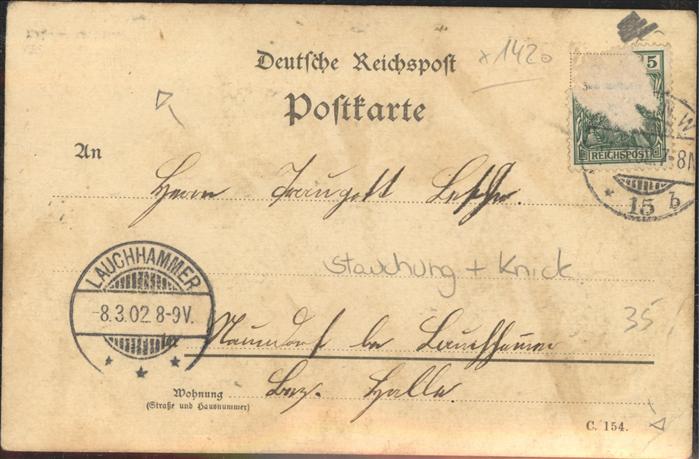 Deutsche Reichspost
x 1420
Postkarte
5
REICHSPOST
N.W.
8N
15 b
An
Herrn Traugott
Stauchung + Knick
LAUCHHAMMER
-8.3.02. 8-9V.
35,
in Naundorf bei Lauchhammer
Wohnung
(Straße und Hausnummer)
Bez. Halle.
C. 154.